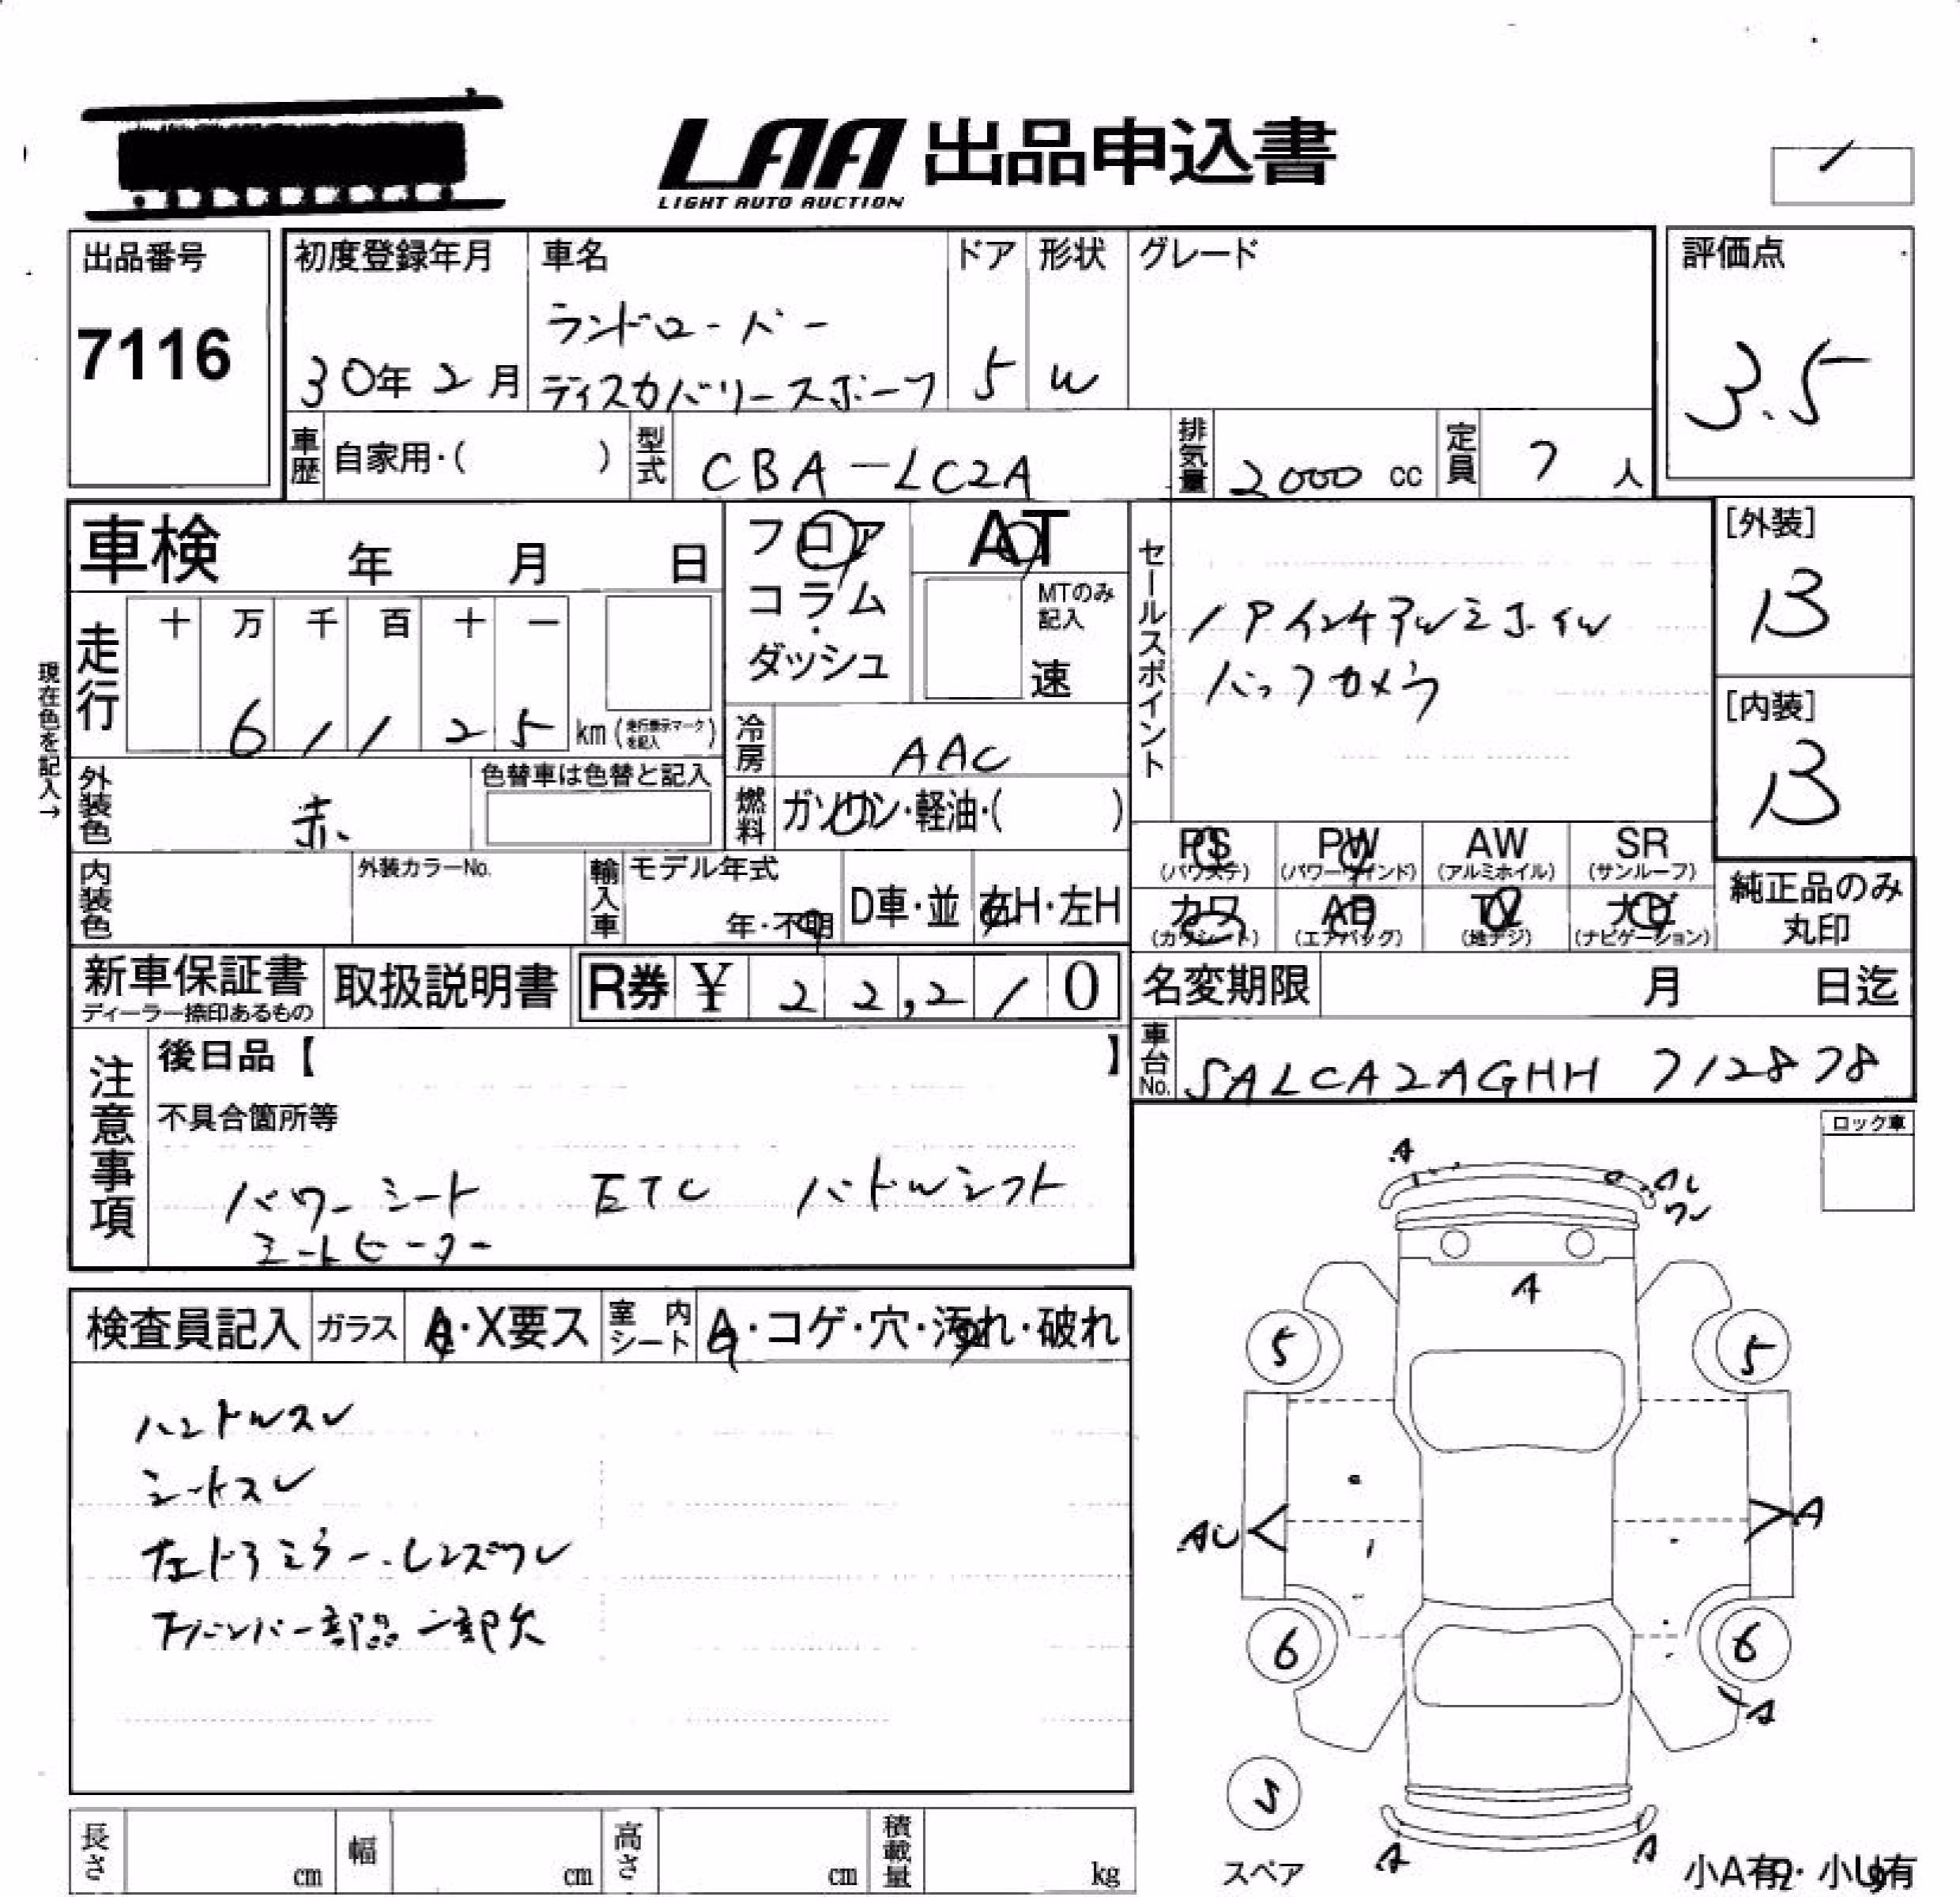 LAA 出品申込書
LIGHT AUTO AUCTION
出品番号
7116
初度登録年月
30年 2月
車名
ランドローバー
ディスカバリースポーツ
ドア
5
形状
W
グレード
評価点
3.5
車歴 自家用・( )
型式 CBA-LC2A
排気量 2000 cc
定員 7 人
車検 年 月 日
フロア
コラム
・
ダッシュ
AT
MTのみ
記入
速
走行 十 万 千 百 十 一
6 1 1 2 5 km (走行表示マークを記入)
現在色を記入→
外装色 赤
色替車は色替と記入
冷房 AAC
燃料 ガソリン・軽油・( )
セールスポイント
19インチアルミホイル
バックカメラ
[外装]
B
[内装]
B
内装色
外装カラーNo.
輸入車
モデル年式
年・不明
D車・並
右H・左H
PS (パワステ)
PW (パワーウインド)
AW (アルミホイル)
SR (サンルーフ)
カワ (カワシート)
AB (エアバッグ)
TV (地デジ)
ナビ (ナビゲーション)
純正品のみ
丸印
新車保証書
ディーラー捺印あるもの
取扱説明書
R券 ¥ 2 2,2 1 0
名変期限 月 日迄
車台No. SALCA2AGHH 712878
注意事項
後日品【 】
不具合箇所等
パワーシート ETC パドルシフト
シートヒーター
ロック車
検査員記入 ガラス A・X要ス 室内シート A・コゲ・穴・汚れ・破れ
ハンドルスレ
シートスレ
左ドアミラー・レンズワレ
下バンパー部品一部欠
A
AU
ワレ
A
5
5
AU
A
6
6
A
S
スペア
A
A
小A有・小U有
長さ cm
幅 cm
高さ cm
積載量 kg